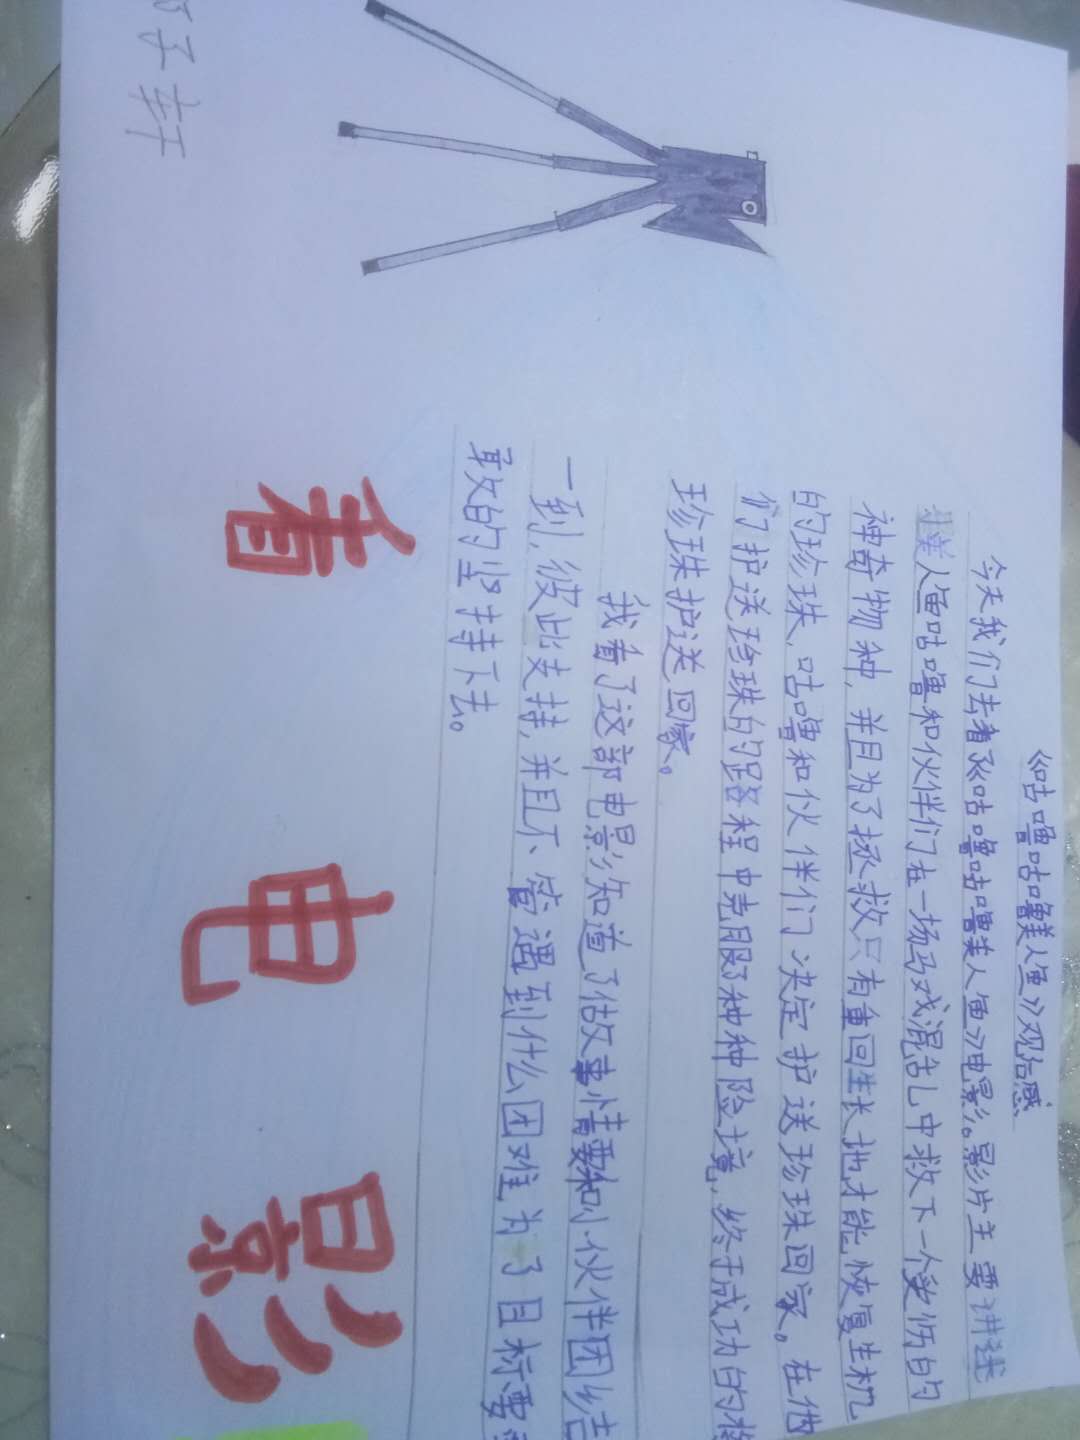 《咕噜咕噜美人鱼》观后感
今天我们去看了《咕噜咕噜美人鱼》电影。影片主要讲述
美人鱼咕噜和伙伴们在一场马戏混乱中救下一个受伤的
神奇物种，并且为了拯救只有重回生长地才能恢复生机
的珍珠，咕噜和伙伴们决定护送珍珠回家。在他
们护送珍珠的路程中克服了种种险境，终于成功的将
珍珠护送回家。
我看了这部电影知道了做事情要和小伙伴团结
一到，彼此支持，并且不管遇到什么困难为了目标要
敢的坚持下去。
看电影
子轩